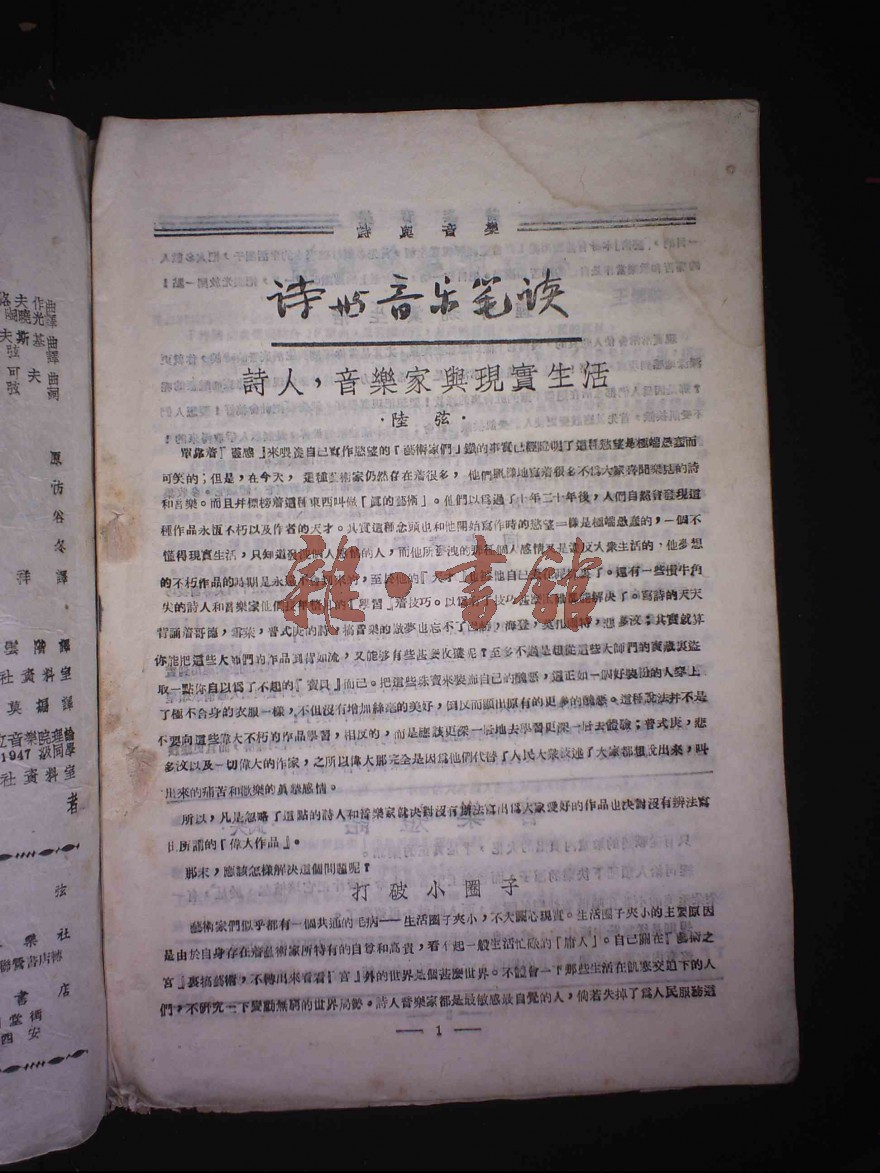 詩與音樂
诗与音乐笔谈
詩人，音樂家與現實生活
·陸弦·
單靠着『靈感』來喂養自己寫作慾望的『藝術家們』鐵的事實已經證明了這種慾望是極端愚蠢而
可笑的；但是，在今天，這種藝術家仍然存在着很多，他們
寫着很多不為大家喜聞樂見的詩
和音樂。而且并標榜着這種東西叫做『眞的藝術』。他們以爲過了十年二十年後，人們自然會發現這
種作品永恆不朽以及作者的天才。其實這種念頭也和他開始寫作時的慾望一樣是極端愚蠢的，一個不
懂得現實生活，只知道
個人感情的人，而他所發洩的那種個人感情又是違反大衆生活的，他夢想
的不朽作品的時期是永遠不會到來的，至於他的『天才』也
了。還有一些鑽牛角
尖的詩人和音樂家他們長年整月的『學習』着技巧。以爲
解決了。寫詩的天天
背誦着哥德，雪萊，普式庚的詩，搞音樂的做夢也忘不了
，海登，莫扎爾特，悲多汶；其實就算
你能把這些大師們的作品到背如流，又能够有些甚麼收穫呢？至多不過是想從這些大師們的寶藏裏盜
取一點你自以爲了不起的『寶貝』而已。把這些珠寶來裝飾自己的醜惡，這正如一個好裝扮的人穿上
了極不合身的衣服一樣，不但沒有增加絲毫的美好，倒反而顯出原有的更多的醜惡。這種說法并不是
不要向這些偉大不朽的作品學習，相反的，而是應該更深一層地去學習更深一層去體驗；普式庚，悲
多汶以及一切偉大的作家，之所以偉大那完全是因爲他們代替了人民大衆敍述了大家都想說出來，叫
出來的痛苦和歡樂的眞摯感情。
所以，凡是忽略了這點的詩人和音樂家就決對沒有辦法寫出爲大家愛好的作品也決對沒有辨法寫
出所謂的『偉大作品』。
那末，應該怎樣解決這個問題呢？
打破小圈子
藝術家們似乎都有一個共通的毛病——生活圈子夾小，不大關心現實。生活圈子夾小的主要原因
是由於自身存在着藝術家所特有的自尊和高貴，看不起一般生活忙碌的『庸人』。自己關在『藝術之
宮』裏搞藝術，不轉出來看看『宮』外的世界是個甚麼世界。不體會一下那些生活在飢寒交迫下的人
們，不研究一下變動無窮的世界局勢。詩人音樂家都是最敏感最自覺的人，倘若失掉了爲人民服務這
— 1 —
雜·書館
作曲
曉光譯
夫斯基曲
弦譯
可夫曲
弦詞
原
訪
谷
冬
祥譯
雲階譯
社資料室
莫編譯
立音樂院理論
1947級同學
社資料室
者
弦
樂社
聯營書店轉
書店
西安